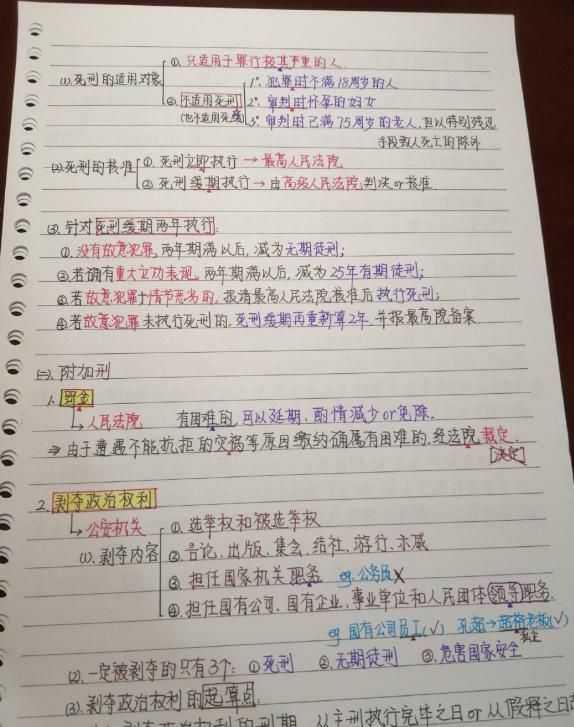 ①. 只适用于罪行极其严重的人.
(1). 死刑的适用对象
1°. 犯罪时不满18周岁的人
②. 不适用死刑 2°. 审判时怀孕的妇女
(也不适用死缓) 3°. 审判时已满75周岁的老人, 但以特别残忍
手段致人死亡的除外
(2). 死刑的核准 ①. 死刑立即执行 → 最高人民法院
②. 死刑缓期执行 → 由高级人民法院判决or核准
(3). 针对死刑缓期两年执行:
①. 没有故意犯罪, 两年期满以后, 减为无期徒刑;
②. 若确有重大立功表现, 两年期满以后, 减为25年有期徒刑;
③. 若故意犯罪, 情节恶劣的, 报请最高人民法院核准后执行死刑;
④. 若故意犯罪未执行死刑的, 死刑缓期再重新算2年, 并报最高院备案
㈡. 附加刑
1. 罚金
↳ 人民法院 有困难的, 可以延期、酌情减少or免除.
⇒ 由于遭遇不能抗拒的灾祸等原因缴纳确属有困难的, 经法院裁定.
[决定]
2. 剥夺政治权利
↳ 公安机关 ①. 选举权和被选举权
(1). 剥夺内容 ②. 言论, 出版, 集会, 结社, 游行, 示威
③. 担任国家机关职务 eg. 公务员X
④. 担任国有公司, 国有企业, 事业单位和人民团体领导职务.
eg 国有公司员工(√)
(2). 一定被剥夺的只有3个: ①死刑 ②. 无期徒刑 ③. 危害国家安全
(3). 剥夺政治权利的起算点
剥夺政治权利的刑期, 从主刑执行完毕之日or从假释之日